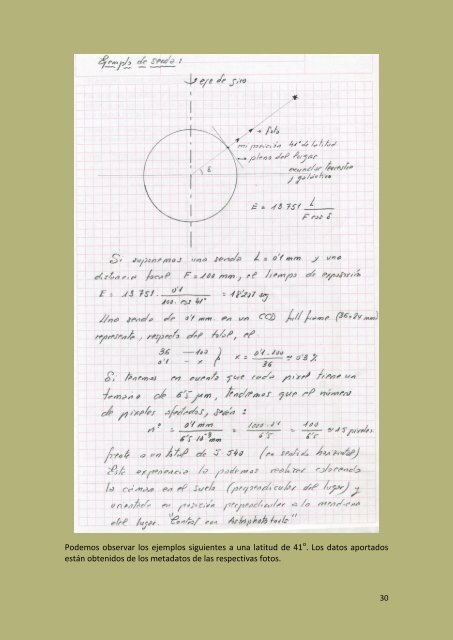 Ejemplo de senda:
eje de giro
+ foto
mi posición 41° de latitud
plano del lugar
ecuador terrestre
y galáctico
δ
E = 13 751 L / F cos δ
Si suponemos una senda L = 0'1 mm. y una
distancia focal F = 100 mm, el tiempo de exposición
E = 13 751 · 0'1 / 100. cos 41° = 18'221 sg
Una senda de 0'1 mm. en un CCD full frame (36×24 mm)
representa, respecto del total, el
36 — 100
0'1 — x } x = 0'1 · 100 / 36 ≈ 0'3 %
Si tenemos en cuenta que cada pixel tiene un
tamaño de 6'5 μm, tendremos que el número
de pixeles afectados, serán:
nº = 0'1 mm / 6'5 10⁻³ mm = 1000 · 0'1 / 6'5 = 100 / 6'5 ≈ 15 pixeles
frente a un total de 5 540 (en sentido horizontal)
Esta experiencia la podemos realizar colocando
la cámara en el suelo (perpendicular del lugar) y
orientada en posición perpendicular a la meridiana
del lugar. "Control con Astrophototools"
Podemos observar los ejemplos siguientes a una latitud de 41°. Los datos aportados
están obtenidos de los metadatos de las respectivas fotos.
30